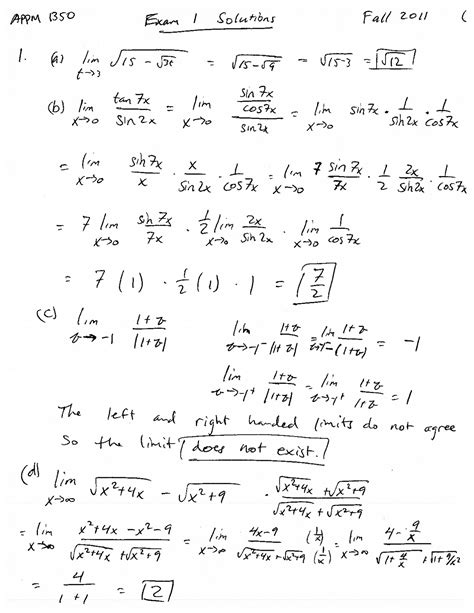 APPM 1350 Exam 1 Solutions Fall 2011 (
1. (a) lim t→3 √(15 - √3t) = √(15-√9) = √(15-3) = √12
(b) lim x→0 tan 7x / sin 2x = lim x→0 (sin 7x / cos 7x) / sin 2x = lim x→0 sin 7x · 1/sin 2x · 1/cos 7x
= lim x→0 sin 7x / x · x / sin 2x · 1 / cos 7x = lim x→0 7 sin 7x / 7x · 1/2 · 2x / sin 2x · 1 / cos 7x
= 7 lim x→0 sin 7x / 7x · 1/2 lim x→0 2x / sin 2x · lim x→0 1 / cos 7x
= 7 (1) · 1/2 (1) · 1 = 7/2
(c) lim v→-1 1+v / |1+v| lim v→-1⁻ 1+v / |1+v| = lim v→-1⁻ 1+v / -(1+v) = -1
lim v→-1⁺ 1+v / |1+v| = lim v→-1⁺ 1+v / 1+v = 1
The left and right handed limits do not agree
So the limit does not exist.
(d) lim x→∞ √(x²+4x) - √(x²+9) · √(x²+4x) + √(x²+9) / √(x²+4x) + √(x²+9)
= lim x→∞ x²+4x-x²-9 / √(x²+4x) + √(x²+9) = lim x→∞ 4x-9 / √(x²+4x) + √(x²+9) (1/x) / (1/x) = lim x→∞ 4 - 9/x / √(1+4/x) + √(1+9/x²)
= 4 / 1+1 = 2